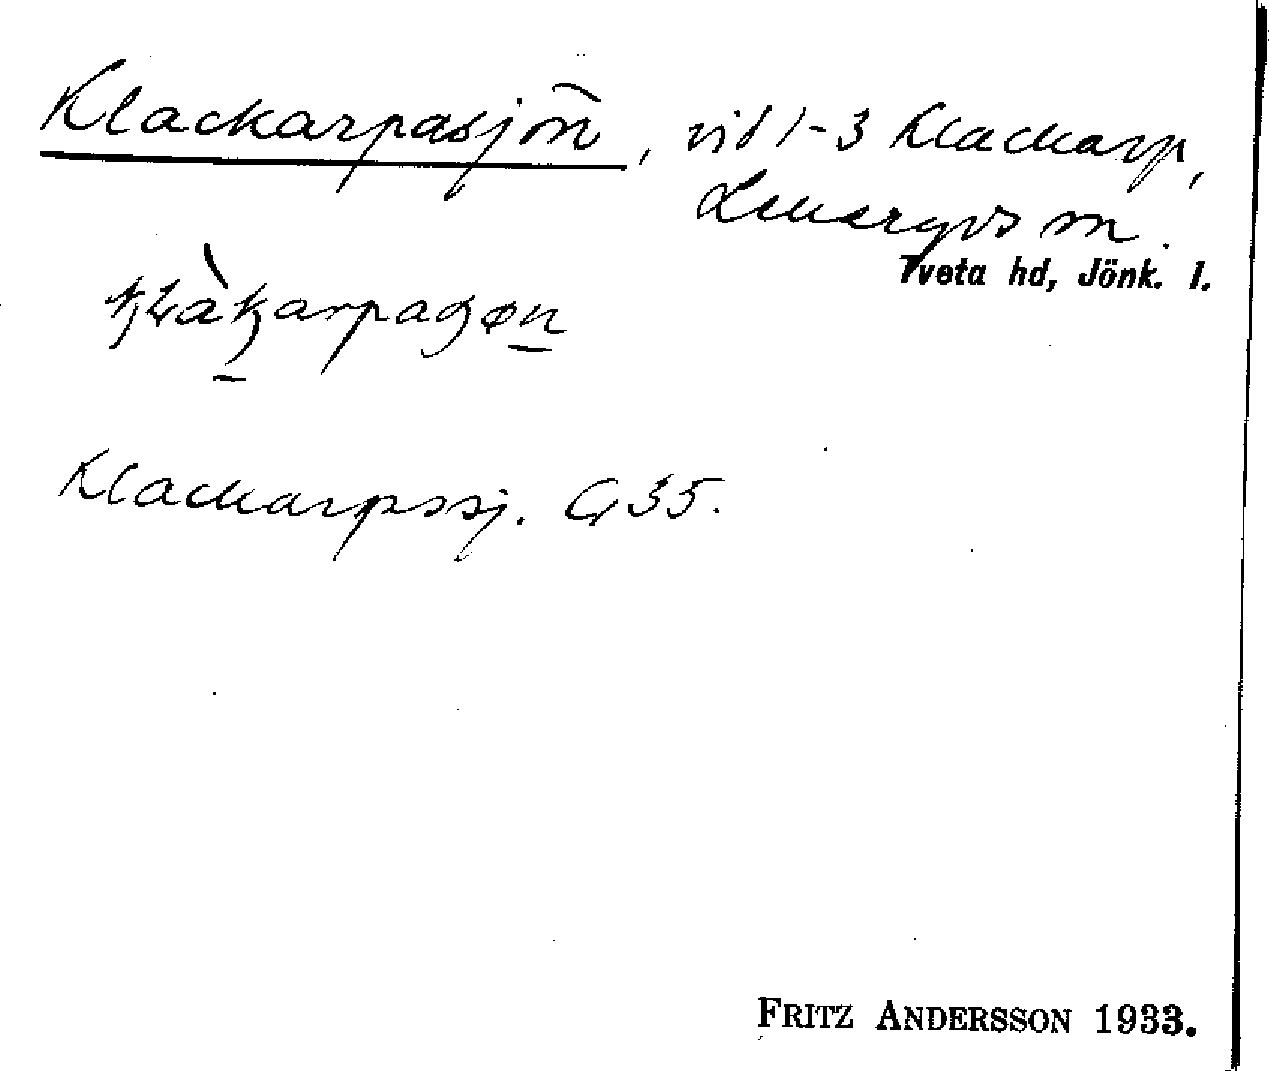 Klackarpasjön, vid 1-3 Klackarp,
Lekeryds sn.
Tveta hd, Jönk. l.
Klackarpssj. G 35.
FRITZ ANDERSSON 1933.